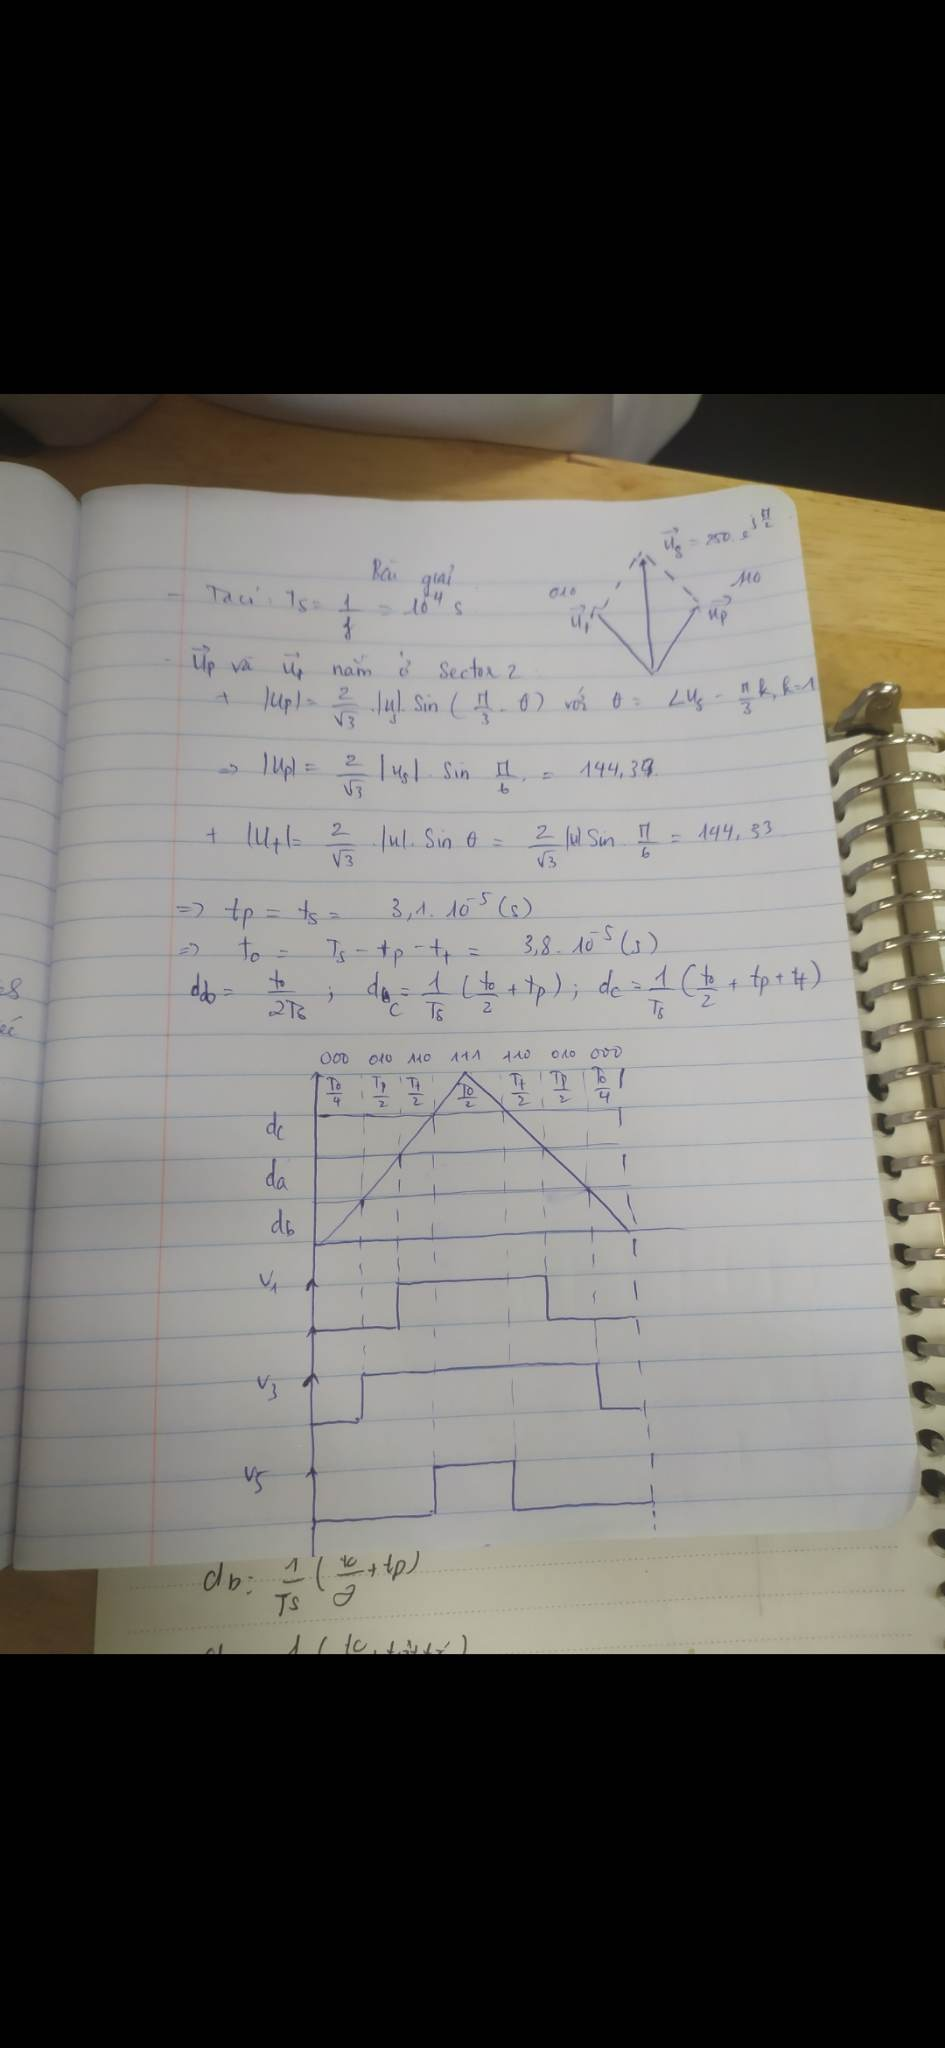 Bài giải
u⃗s = 250.e^{jπ/2}
010
110
u⃗t
u⃗p
- Ta có: Ts = 1/f = 10⁻⁴ s
- u⃗p và u⃗t nằm ở Sector 2
+ |Up| = 2/√3 .|u|. Sin ( π/3 - θ) với θ = ∠us - π/3 k, k=1
=> |Up| = 2/√3 |us|. Sin π/6 = 144,34
+ |Ut| = 2/√3 .|u|. Sin θ = 2/√3 |u| Sin π/6 = 144,33
=> tp = ts = 3,1. 10⁻⁵ (s)
=> to = Ts - tp - tt = 3,8. 10⁻⁵ (s)
db = to/2Ts ; dc = 1/Ts (to/2 + tp) ; dc = 1/Ts (to/2 + tp + tt)
000 010 110 111 110 010 000
To/4 Tp/2 Tt/2 To/2 Tt/2 Tp/2 To/4
dc
da
db
V1
V3
V5
db: 1/Ts (to/2 + tp)